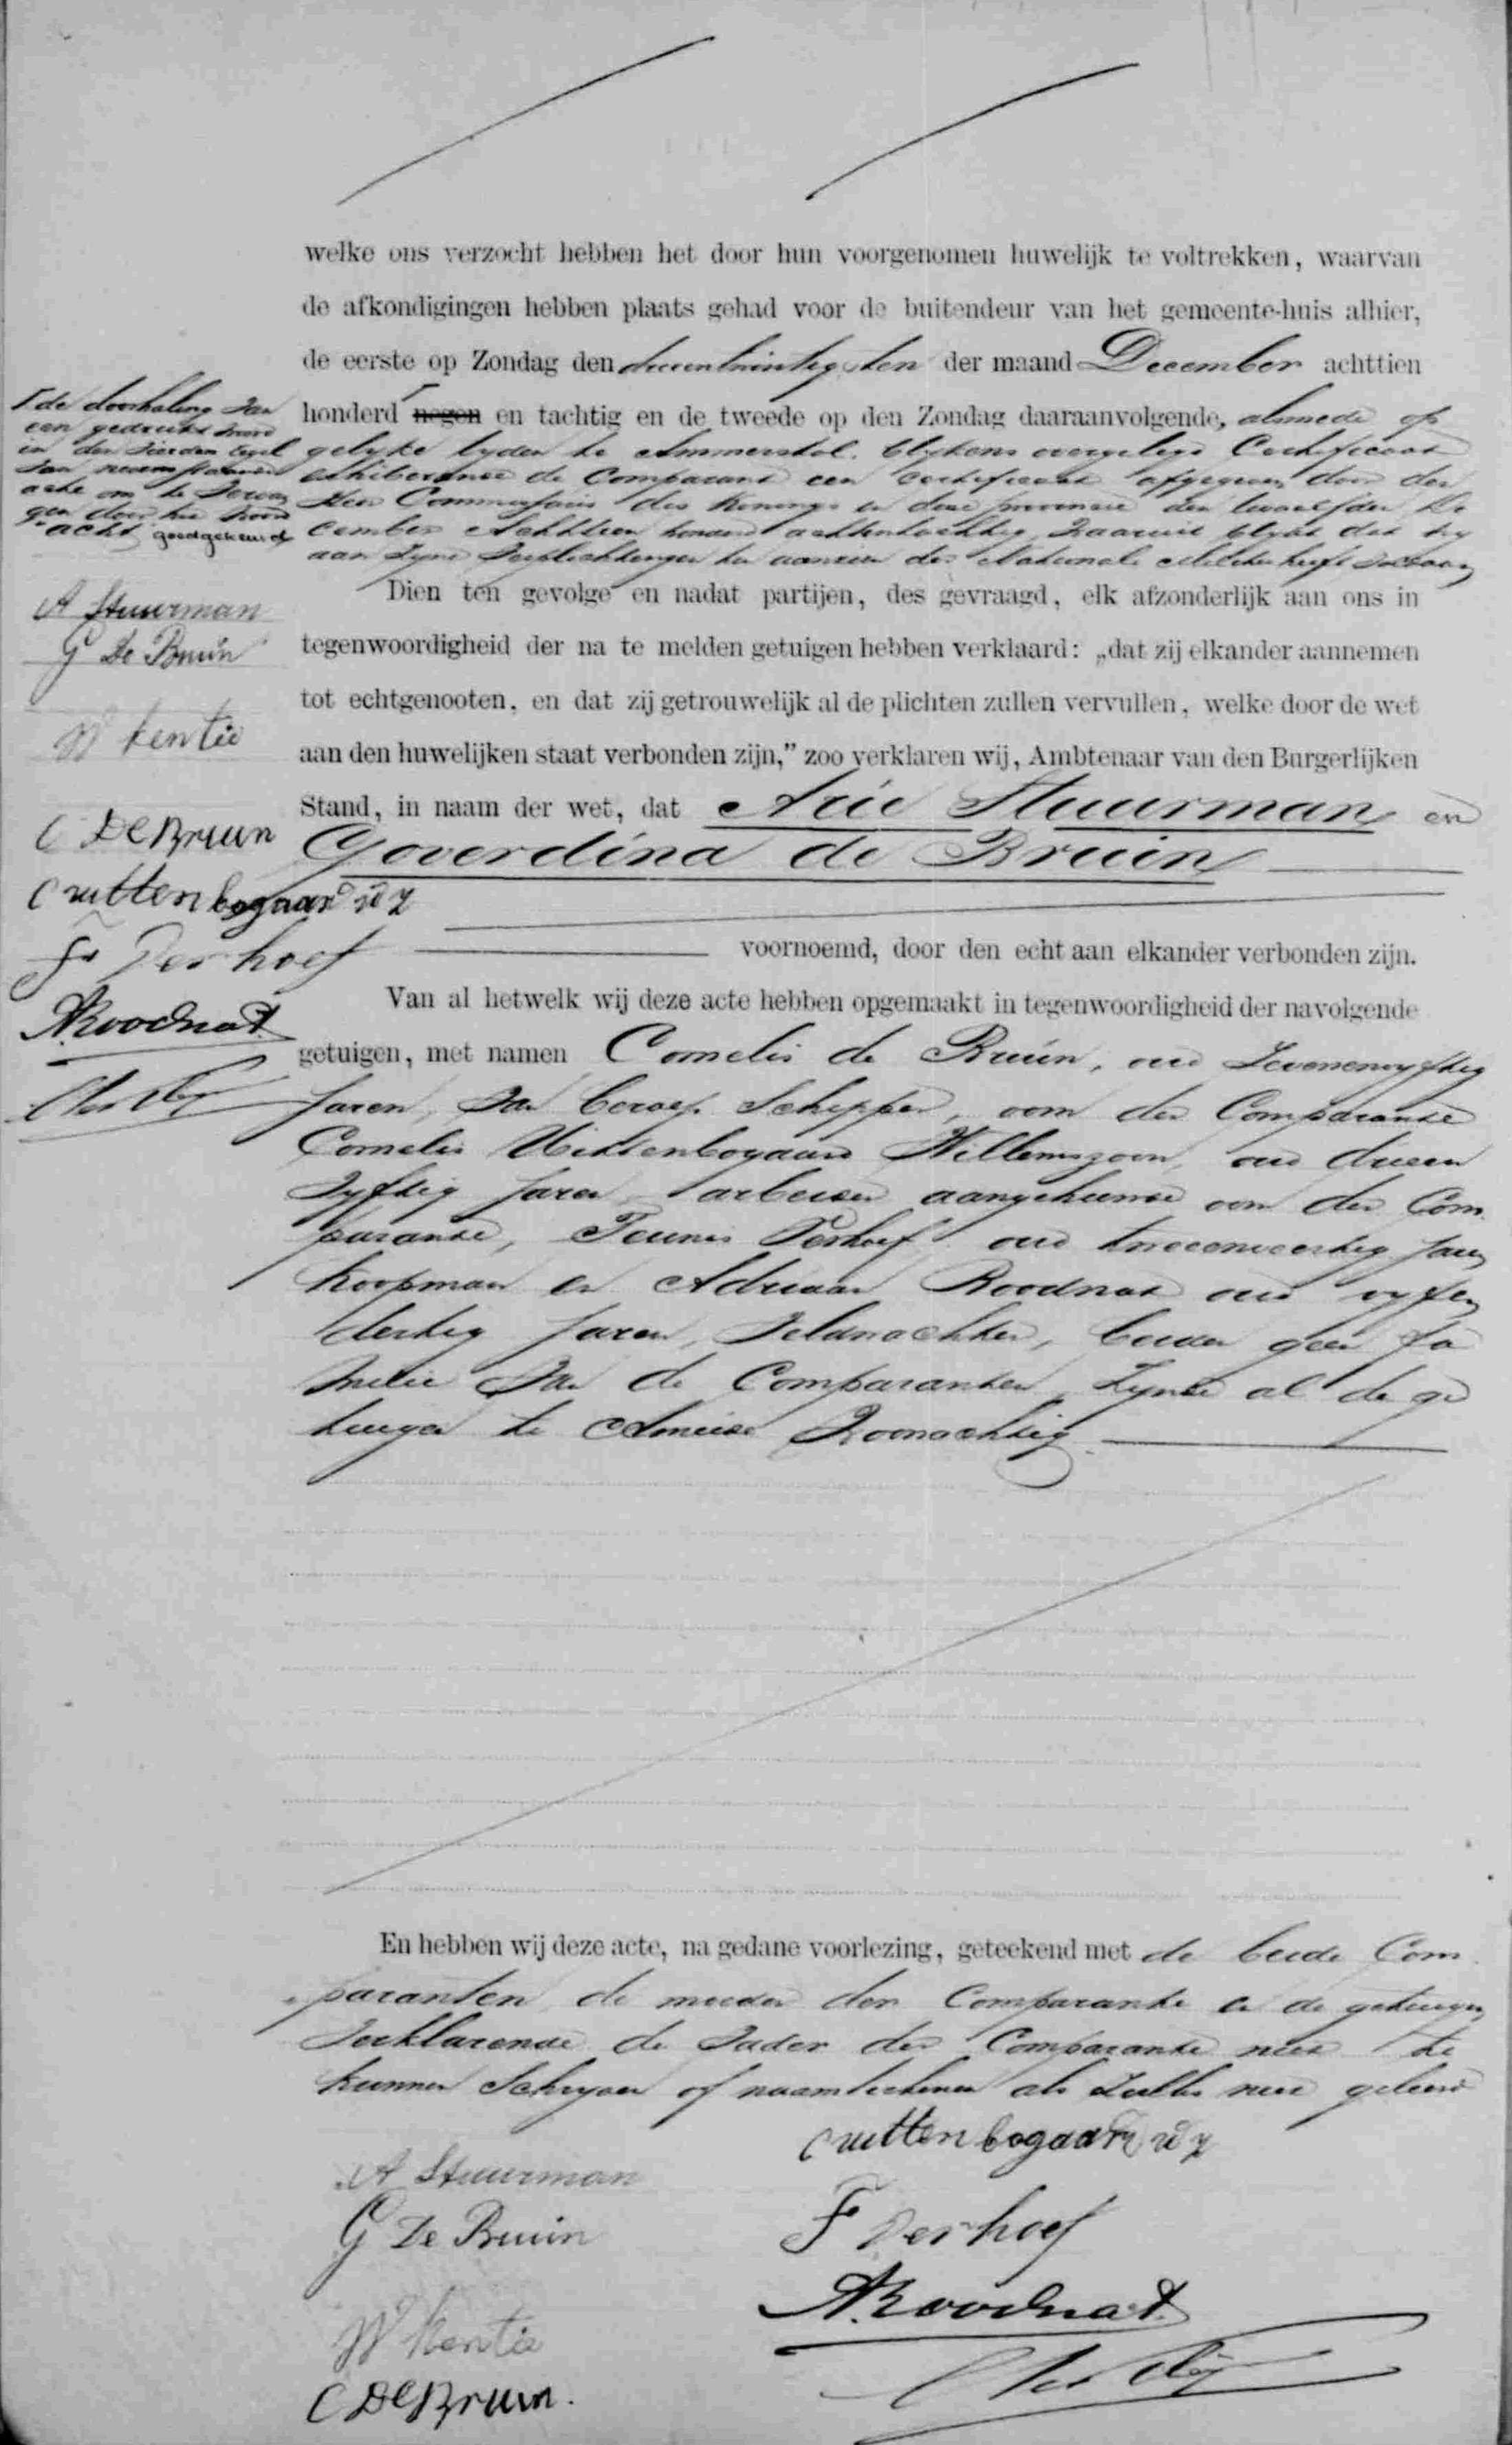 welke ons verzocht hebben het door hun voorgenomen huwelijk te voltrekken, waarvan
de afkondigingen hebben plaats gehad voor de buitendeur van het gemeente-huis alhier,
de eerste op Zondag den drieentwintigsten der maand December achttien
honderd negen en tachtig en de tweede op den Zondag daaraanvolgende, alsmede op
gelyke tyden te Ammerstol. blykens overgelegd Certificaat
exhiberende de Comparant een certificaat afgegeven door den
Heer Commissaris des Konings in deze provincie den twaalfden De
cember Achttien honderd achtentachtig, waaruit blykt dat hy
aan zyne verplichtingen ten aanzien der Nationale Militie heeft voldaan
Dien ten gevolge en nadat partijen, des gevraagd, elk afzonderlijk aan ons in
tegenwoordigheid der na te melden getuigen hebben verklaard: „dat zij elkander aannemen
tot echtgenooten, en dat zij getrouwelijk al de plichten zullen vervullen, welke door de wet
aan den huwelijken staat verbonden zijn,” zoo verklaren wij, Ambtenaar van den Burgerlijken
Stand, in naam der wet, dat Arie Stuurman en
Goverdina de Bruin
voornoemd, door den echt aan elkander verbonden zijn.
Van al hetwelk wij deze acte hebben opgemaakt in tegenwoordigheid der navolgende
getuigen, met namen Cornelis de Bruin, oud zevenenvyftig
Jaren, van beroep Schipper, oom der Comparante
Cornelis Uittenbogaard Willemszoon, oud drieen
vyftig Jaren arbeider aangehuwde oom der Com
parante, Teunis Verhoef oud tweeenveertig Jaren
Koopman en Adriaan Roodnat oud vyfen
dertig Jaren, Veldwachter, beiden geen fa
milie van de Comparanten, zynde al de ge
tuigen te Ameide woonachtig
de doorhaling van
een gedrukt woord
in den vierden regel
van nevenstaande
acte om te vervan
gen door het woord
"acht" goedgekeurd
A Stuurman
G De Bruin
W Kentie
C DE Bruin
C uittenbogaard Wz
F Verhoef
A. Roodnat
En hebben wij deze acte, na gedane voorlezing, geteekend met de beide Com
paranten de moeder der Comparante en de getuigen
verklarende de vader der Comparante niet te
kunnen Schryven of naamteekenen als zulks niet geleerd
A Stuurman
G De Bruin
W Kentie
C DE Bruin.
C uittenbogaard Wz
F Verhoef
A. Roodnat